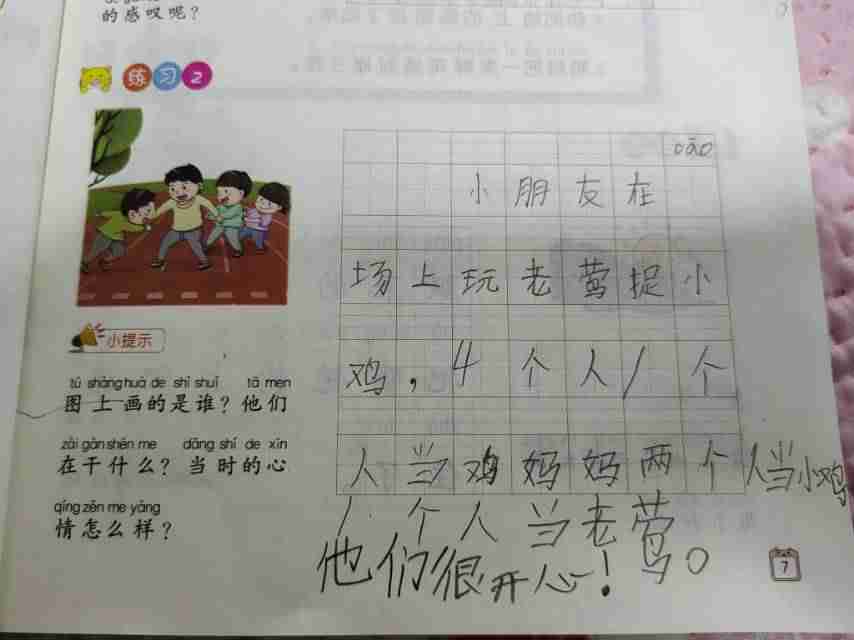 的感叹呢？
练习2
cāo
小朋友在
场上玩老莺捉小
鸡，4个人1个
人当鸡妈妈两个人当小鸡
1个人当老莺。
他们很开心！
小提示
tú shàng huà de shì shuí tā men
图上画的是谁？他们
zài gàn shén me dāng shí de xīn
在干什么？当时的心
qíng zěn me yàng
情怎么样？
7